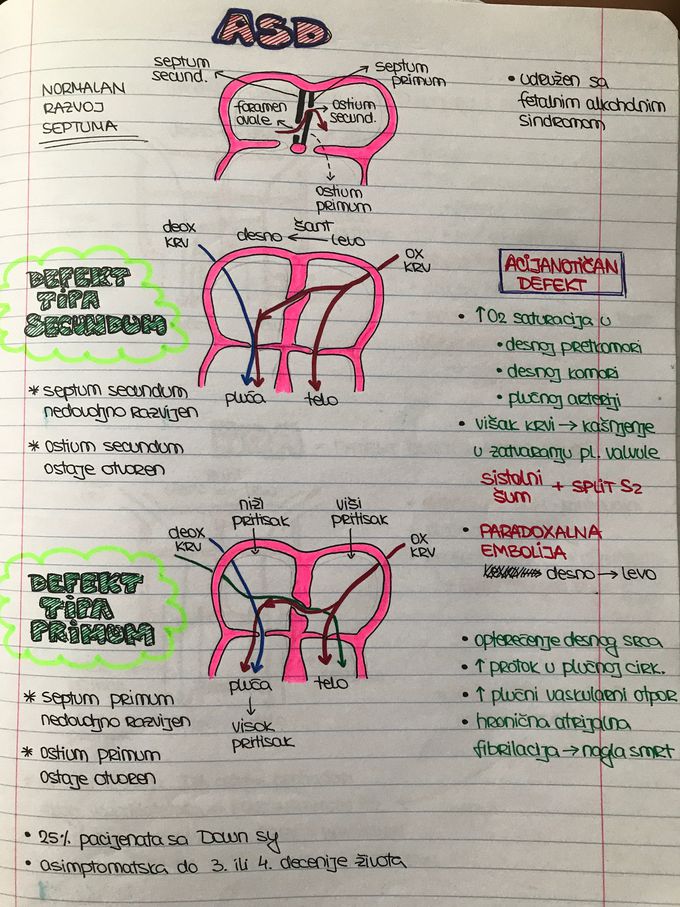 ASD
NORMALAN
RAZVOJ
SEPTUMA
septum
secund.
septum
primum
foramen
ovale
ostium
secund.
ostium
primum
• udružen sa
fetalnim alkoholnim
sindromom
DEFEKT
TIPA
SECUNDUM
deox
KRV
šant
desno ← levo
OX
KRV
pluća
telo
* septum secundum
nedovoljno razvijen
* ostium secundum
ostaje otvoren
ACIJANOTIČAN
DEFEKT
• ↑O2 saturacija u
• desnoj pretkomori
• desnoj komori
• plućnoj arteriji
• višak krvi → kašnjenje
u zatvaranju pl. valvule
sistolni
šum + SPLIT S2
• PARADOXALNA
EMBOLIJA
desno → levo
DEFEKT
TIPA
PRIMUM
niži
pritisak
viši
pritisak
deox
KRV
OX
KRV
pluća
↓
visok
pritisak
telo
* septum primum
nedovoljno razvijen
* ostium primum
ostaje otvoren
• opterećenje desnog srca
• ↑ protok u plućnoj cirk.
• ↑ plućni vaskularni otpor
• hronična atrijalna
fibrilacija → nagla smrt
• 25% pacijenata sa Down sy
• asimptomatska do 3. ili 4. decenije života